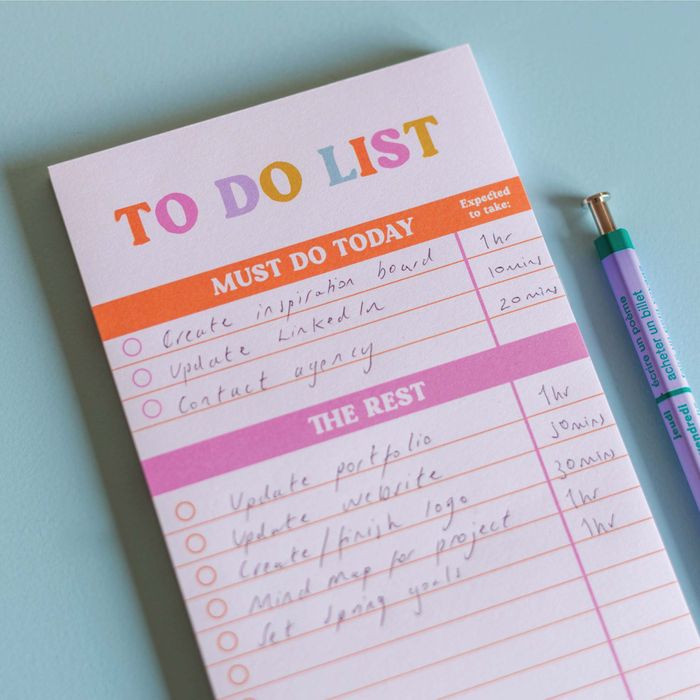 TO DO LIST
Expected
to take:
MUST DO TODAY
Create inspiration board 1hr
Update LinkedIn 10mins
Contact agency 20mins
THE REST
Update portfolio 1hr
Update website 30mins
Create/finish logo 30mins
Mind map for project 1hr
Set spring goals 1hr
écrire un poème
acheter un billet
jeudi
vendredi